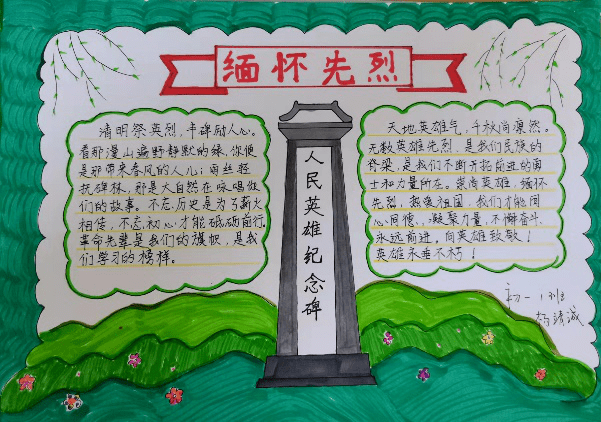 缅怀先烈
清明祭英烈，丰碑励人心。
看那漫山遍野静默的绿，你便
是那带来春风的人儿；雨丝轻
抚碑林，那是大自然在咏唱你
们的故事。不忘历史是为了薪火
相传，不忘初心才能砥砺前行。
革命先辈是我们的旗帜，是我
们学习的榜样。
人民英雄纪念碑
天地英雄气，千秋尚凛然。
无数英雄先烈，是我们民族的
脊梁，是我们不断开拓前进的勇
士和力量所在。崇尚英雄，缅怀
先烈，热爱祖国，我们才能同
心同德，凝聚力量，不懈奋斗，
永远前进，向英雄致敬！
英雄永垂不朽！
初一 1班
杨诚